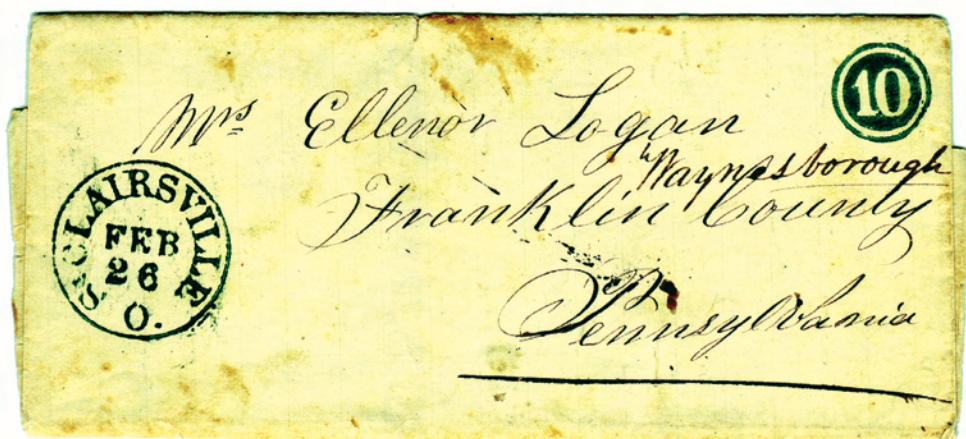 10
Mrs Ellenor Logan
Waynesborough
Franklin County
Pennsylvania
St CLAIRSVILLE
FEB
26
O.